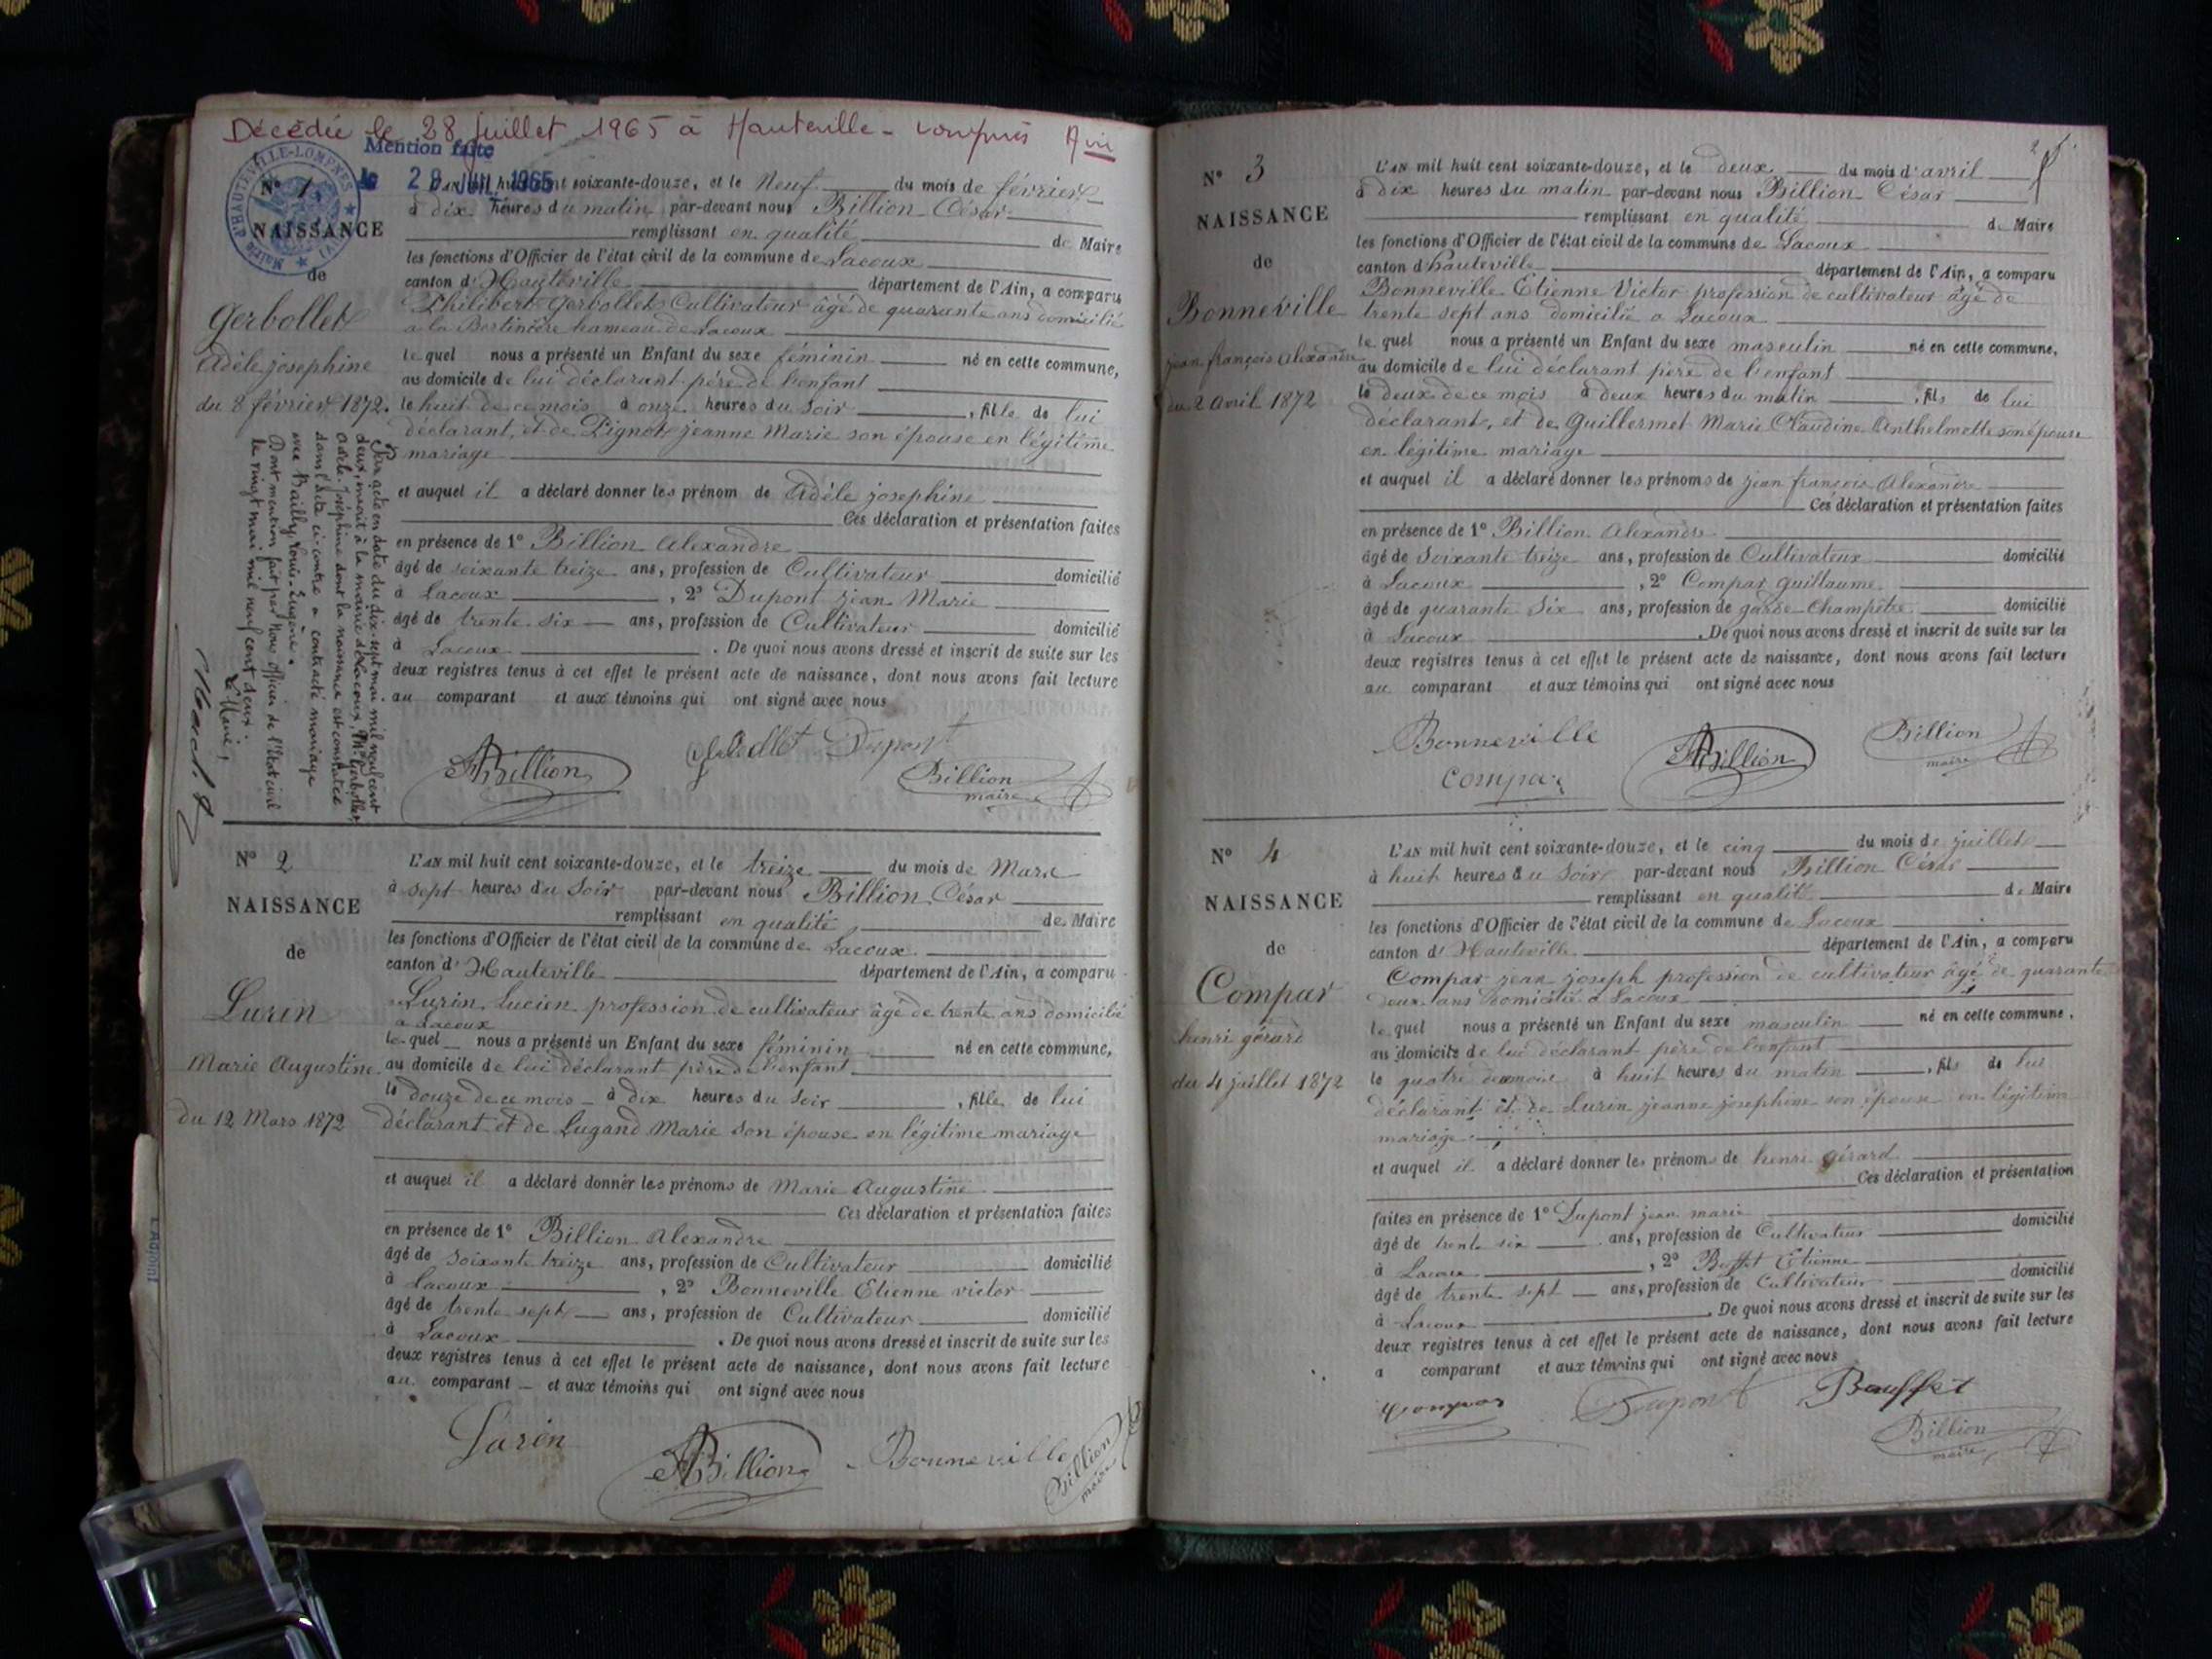 Décédée le 28 juillet 1965 à Hauteville-Lompnes Ain
Mention faite
le 28 JUIL. 1965
Mairie d'HAUTEVILLE-LOMPNES
N° 1
NAISSANCE
de
Gerbollet
Adèle josephine
du 8 février 1872.
L'AN mil huit cent soixante-douze, et le Neuf du mois de février
à dix heures du matin par-devant nous Billion César
remplissant en qualité de Maire
les fonctions d'Officier de l'état civil de la commune de Lacoux
canton d'Hauteville département de l'Ain, a comparu
Philibert Gerbollet Cultivateur âgé de quarante ans domicilié
a la Bertinière hameau de Lacoux
le quel nous a présenté un Enfant du sexe féminin né en cette commune,
au domicile de lui déclarant père de l'enfant
le huit de ce mois à onze heures du soir, fille de lui
déclarant, et de Pignot jeanne Marie son épouse en légitime
mariage
et auquel il a déclaré donner les prénom de Adèle josephine
Ces déclaration et présentation faites
en présence de 1° Billion Alexandre
âgé de soixante treize ans, profession de Cultivateur domicilié
à Lacoux, 2° Dupont jean Marie
âgé de trente six ans, profession de Cultivateur domicilié
à Lacoux. De quoi nous avons dressé et inscrit de suite sur les
deux registres tenus à cet effet le présent acte de naissance, dont nous avons fait lecture
au comparant et aux témoins qui ont signé avec nous
Par acte en date du dix-sept mai mil neuf cent
deux, inscrit à la mairie de Lacoux, Gerbollet
Adèle Joséphine dont la naissance est constatée
dans l'acte ci-contre a contracté mariage
avec Bailly Louis-Eugène.
Dont mention fait par Nous officier de l'Etat civil
le vingt mai mil neuf cent deux.
Le Maire,
ABillion
Gerbollet Dupont
Billion
maire
N° 2
NAISSANCE
de
Lurin
Marie Augustine
du 12 Mars 1872
L'AN mil huit cent soixante-douze, et le treize du mois de Mars
à sept heures du Soir par-devant nous Billion César
remplissant en qualité de Maire
les fonctions d'Officier de l'état civil de la commune de Lacoux
canton d'Hauteville département de l'Ain, a comparu
Lurin Lucien profession de cultivateur âgé de trente ans domicilié
a Lacoux
le quel nous a présenté un Enfant du sexe féminin né en cette commune,
au domicile de lui déclarant père de l'enfant
le douze de ce mois à dix heures du Soir, fille de lui
déclarant et de Lugand Marie son épouse en légitime mariage
et auquel il a déclaré donner les prénoms de Marie Augustine
Ces déclaration et présentation faites
en présence de 1° Billion Alexandre
âgé de soixante treize ans, profession de Cultivateur domicilié
à Lacoux, 2° Bonneville Etienne victor
âgé de trente sept ans, profession de Cultivateur domicilié
à Lacoux. De quoi nous avons dressé et inscrit de suite sur les
deux registres tenus à cet effet le présent acte de naissance, dont nous avons fait lecture
au comparant et aux témoins qui ont signé avec nous
Lurin
ABillion
Bonneville
Billion
maire
2
N° 3
NAISSANCE
de
Bonneville
jean françois Alexandre
du 2 Avril 1872
L'AN mil huit cent soixante-douze, et le deux du mois d'avril
à dix heures du matin par-devant nous Billion César
remplissant en qualité de Maire
les fonctions d'Officier de l'état civil de la commune de Lacoux
canton d'hauteville département de l'Ain, a comparu
Bonneville Etienne Victor profession de cultivateur âgé de
trente sept ans domicilié a Lacoux
le quel nous a présenté un Enfant du sexe masculin né en cette commune,
au domicile de lui déclarant père de l'enfant
le deux de ce mois à deux heures du matin, fils de lui
déclarant, et de Guillermet Marie Claudine Anthelmette son épouse
en légitime mariage
et auquel il a déclaré donner les prénoms de jean françois Alexandre
Ces déclaration et présentation faites
en présence de 1° Billion Alexandre
âgé de soixante treize ans, profession de Cultivateur domicilié
à Lacoux, 2° Compar Guillaume
âgé de quarante Six ans, profession de garde-Champêtre domicilié
à Lacoux. De quoi nous avons dressé et inscrit de suite sur les
deux registres tenus à cet effet le présent acte de naissance, dont nous avons fait lecture
au comparant et aux témoins qui ont signé avec nous
Bonneville
Compar
ABillion
Billion
maire
N° 4
NAISSANCE
de
Compar
henri gérard
du 4 juillet 1872
L'AN mil huit cent soixante-douze, et le cinq du mois de juillet
à huit heures du Soir par-devant nous Billion César
remplissant en qualité de Maire
les fonctions d'Officier de l'état civil de la commune de Lacoux
canton d'Hauteville département de l'Ain, a comparu
Compar jean joseph profession de cultivateur âgé de quarante
deux ans domicilié a Lacoux
le quel nous a présenté un Enfant du sexe masculin né en cette commune,
au domicile de lui déclarant père de l'enfant
le quatre de ce mois à huit heures du matin, fils de lui
déclarant et de Lurin jeanne josephine son épouse en légitime
mariage
et auquel il a déclaré donner les prénoms de henri gérard
Ces déclaration et présentation
faites en présence de 1° Dupont jean marie
âgé de trente six ans, profession de Cultivateur domicilié
à Lacoux, 2° Buffet Etienne
âgé de trente sept ans, profession de Cultivateur domicilié
à Lacoux. De quoi nous avons dressé et inscrit de suite sur les
deux registres tenus à cet effet le présent acte de naissance, dont nous avons fait lecture
a comparant et aux témoins qui ont signé avec nous
Compar Dupont Bouffet
Billion
maire